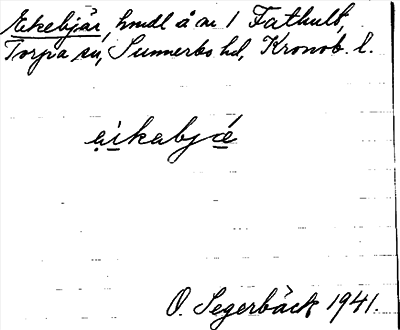 Ekebjär, hmdl å nr 1 Fathult,
Torpa sn, Sunnerbo hd, Kronob. l.
O. Segerbäck 1941.